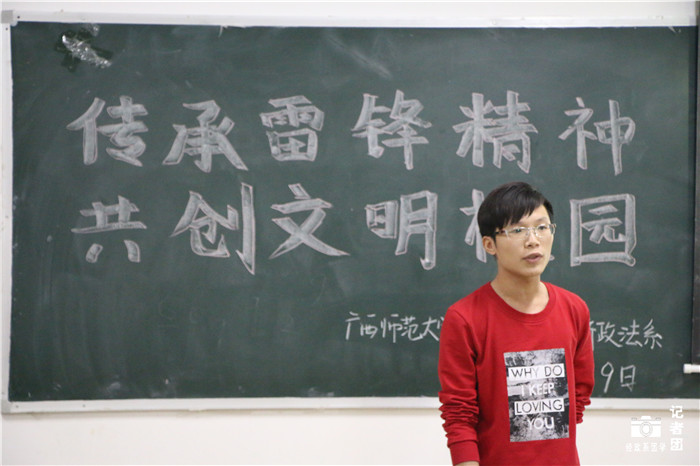 传承雷锋精神
共创文明校园
广西师范大
政法系
9日
WHY DO
I KEEP
LOVING
YOU
记者团